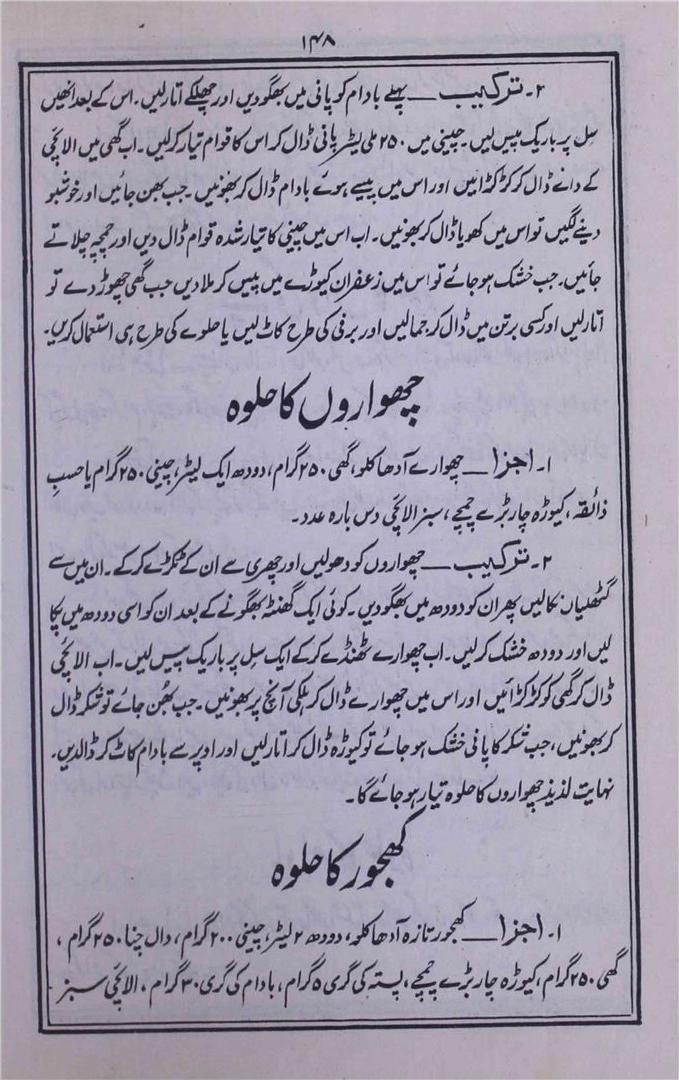 ۱۴۸
۲۔ ترکیب ــــ پہلے بادام کو پانی میں بھگو دیں اور چھلکے اتار لیں۔ اس کے بعد انھیں
سِل پر باریک پیس لیں۔ چینی میں ۲۵۰ ملی لیٹر پانی ڈال کر اس کا قوام تیار کرلیں۔ اب گھی میں الائچی
کے دانے ڈال کر کڑکڑائیں اور اس میں پسے ہوئے بادام ڈال کر بھونیں۔ جب بھن جائیں اور خوشبو
دینے لگیں تو اس میں کھویا ڈال کر بھونیں۔ اب اس میں چینی کا تیار شدہ قوام ڈال دیں اور چمچہ چلاتے
جائیں۔ جب خشک ہو جائے تو اس میں زعفران کیوڑے میں پیس کر ملا دیں جب گھی چھوڑ دے تو
اتار لیں اور کسی برتن میں ڈال کر جمالیں اور برفی کی طرح کاٹ لیں یا حلوے کی طرح ہی استعمال کریں۔
چھواروں کا حلوہ
۱۔ اجزا ــــ چھوارے آدھا کلو، گھی ۲۵۰ گرام، دودھ ایک لیٹر، چینی ۲۵۰ گرام یا حسبِ
ذائقہ، کیوڑہ چار بڑے چمچے، سبز الائچی دس بارہ عدد۔
۲۔ ترکیب ــــ چھواروں کو دھولیں اور چھری سے ان کے ٹکڑے کرکے۔ ان میں سے
گٹھلیاں نکالیں پھر ان کو دودھ میں بھگو دیں۔ کوئی ایک گھنٹہ بھگونے کے بعد ان کو اسی دودھ میں پکا
لیں اور دودھ خشک کرلیں۔ اب چھوارے ٹھنڈے کرکے ایک سِل پر باریک پیس لیں۔ اب الائچی
ڈال کر گھی کو کڑکڑائیں اور اس میں چھوارے ڈال کر ہلکی آنچ پر بھونیں۔ جب بھُن جائے تو شکر ڈال
کر بھونیں، جب شکر کا پانی خشک ہو جائے تو کیوڑہ ڈال کر اتار لیں اور اوپر سے بادام کاٹ کر ڈالدیں۔
نہایت لذیذ چھواروں کا حلوہ تیار ہو جائے گا۔
کھجور کا حلوہ
۱۔ اجزا ــــ کھجور تازہ آدھا کلو، دودھ ۲ لیٹر، چینی ۲۰۰ گرام، دال چنا ۲۵۰ گرام،
گھی ۲۵۰ گرام، کیوڑہ چار بڑے چمچے، پستہ کی گری ۵ گرام، بادام کی گری ۳۰ گرام، الائچی سبز